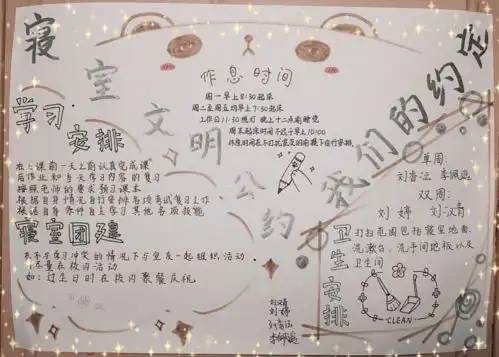 寝室文明公约
我们的约定
作息时间
周一早上8:30起床
周二至周五均早上7:30起床
工作日11:30熄灯 晚上十二点前睡觉
周末起床时间不迟于早上10:00
休息时间在不打扰室友的前提下自行安排
学习安排
在上课前一天之前认真完成课
后作业和当天学习内容的复习
按照老师的要求预习课本
根据自身情况自行安排各项考试复习工作
根据自身条件自主学习其他各项技能
寝室团建
在不与学习冲突的情况下与室友一起组织活动
尽量在校内活动
如:过生日时在校内聚餐庆祝
单周:
刘香沄 李佩遥
双周:
刘婷 刘汶青
卫生安排
打扫范围包括寝室地面、
洗漱台、洗手间地板以及
卫生间
CLEAN
刘婷